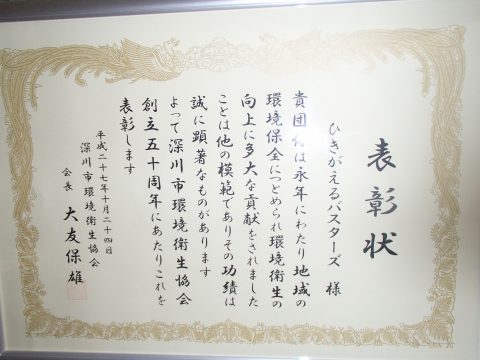 表彰状
ひきがえるバスターズ 様
貴団体は永年にわたり地域の
環境保全につとめられ環境衛生の
向上に多大な貢献をされました
ことは他の模範でありその功績は
誠に顕著なものがあります
よって深川市環境衛生協会
創立五十周年にあたりこれを
表彰します
平成二十七年十月二十四日
深川市環境衛生協会
会長 大友保雄